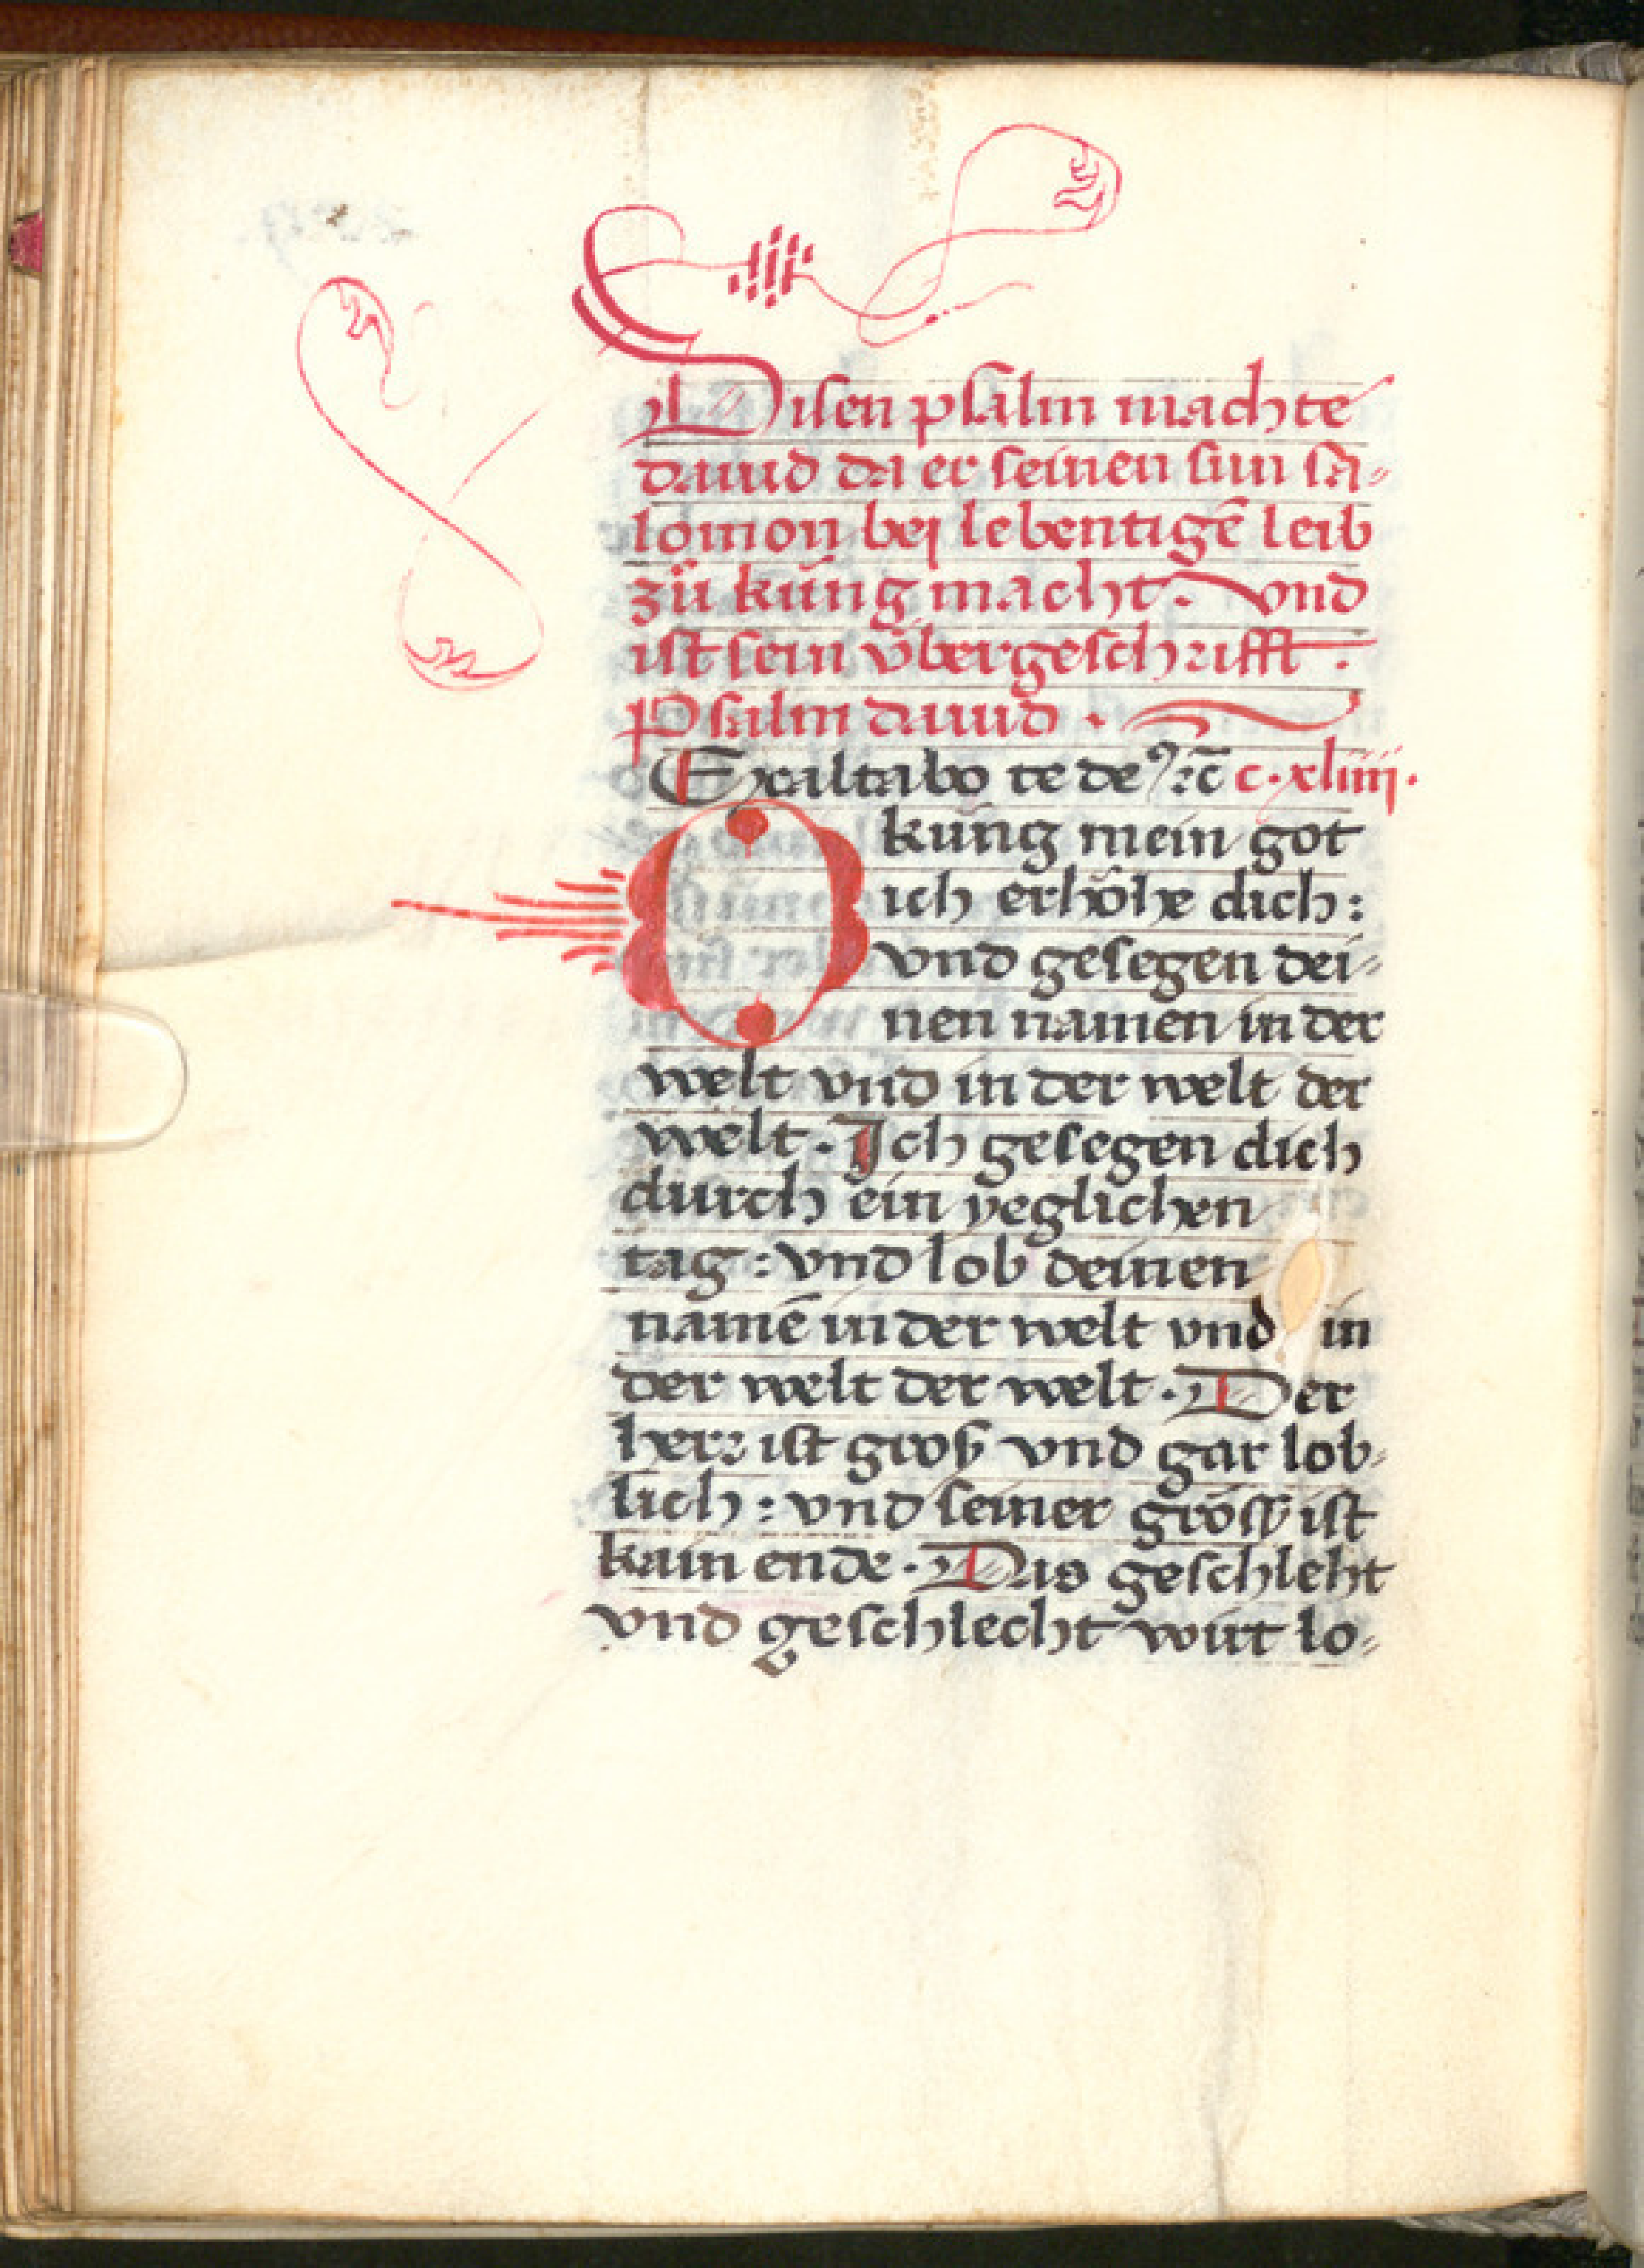 Disen psalm machte
dauid da er seinen sun sa-
lomon bej lebentigē leib
zů kűng macht. Vnd
ist sein v̈bergeschrifft.
Psalm dauid.
Exaltabo te deꝰ ꝛc̄ c.xliiij.
O kűng mein got
ich erhőhe dich:
vnd gesegen dei-
nen namen in der
welt vnd in der welt der
welt. Ich gesegen dich
durch ein yeglichen
tag: vnd lob deinen
namē in der welt vnd in
der welt der welt. Der
herr ist groß vnd gar lob-
lich: vnd seiner gröss ist
kain ende. Das geschleht
vnd geschlecht wirt lo-